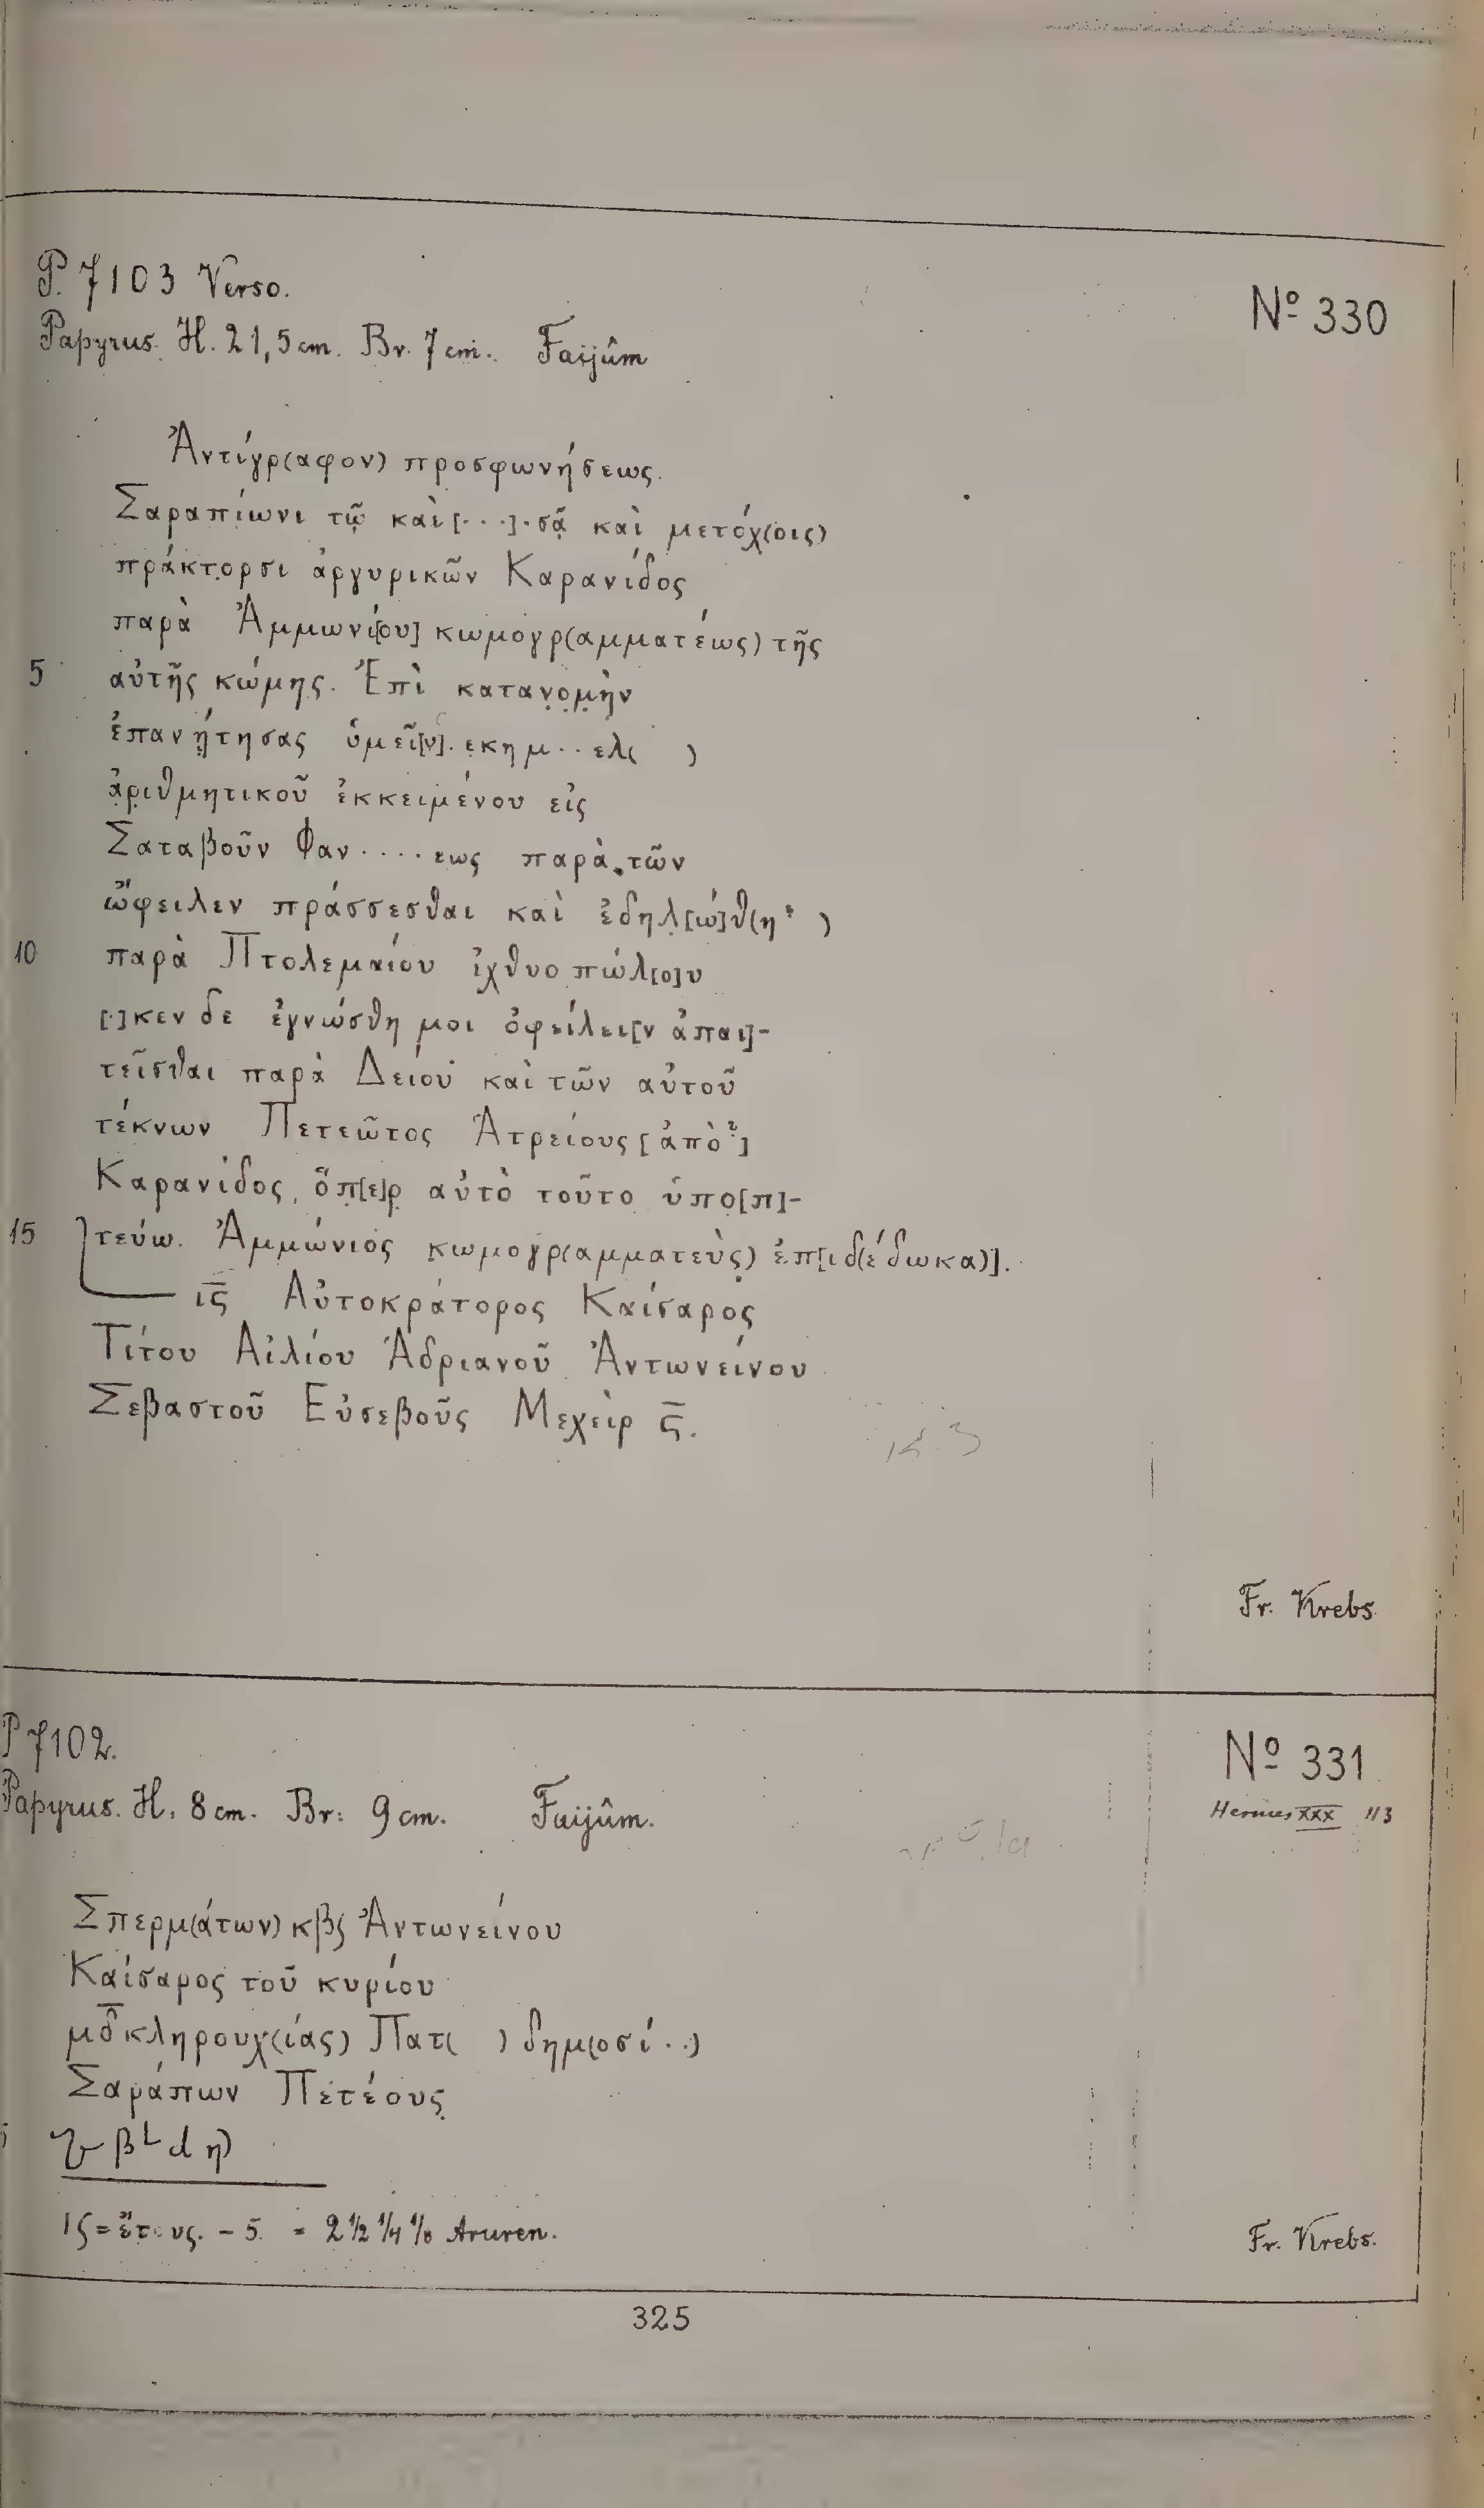 P. 7103 Verso.
Nº 330
Papyrus. H. 21,5 cm. Br. 7 cm. Faijûm
Ἀντίγρ(αφον) προσφωνήσεως.
Σαραπίωνι τῷ καὶ [...].σᾷ καὶ μετόχ(οις)
πράκτορσι ἀργυρικῶν Καρανίδος
παρὰ Ἀμμωνί[ου] κωμογρ(αμματέως) τῆς
5 αὐτῆς κώμης. Ἐπὶ κατανομὴν
ἐπανῄτησας ὑμεῖ[ν]. εκημ..ελ( )
ἀριθμητικοῦ ἐκκειμένου εἰς
Σαταβοῦν Φαν.....εως παρὰ τῶν
ὤφειλεν πράσσεσθαι καὶ ἐδηλ[ώ]θ(η? )
10 παρὰ Πτολεμαίου ἰχθυοπώλ[ο]υ
[.]κεν δε ἐγνώσθη μοι ὀφείλει[ν ἀπαι]-
τεῖσθαι παρὰ Δείου καὶ τῶν αὐτοῦ
τέκνων Πετεῶτος Ἁτρείους [ἀπὸ?]
Καρανίδος, ὅπ[ε]ρ αὐτὸ τοῦτο ὑπο[π]-
15 τεύω. Ἀμμώνιος κωμογρ(αμματεὺς) ἐπ[ιδ(έδωκα)].
ις Αὐτοκράτορος Καίσαρος
Τίτου Αἰλίου Ἁδριανοῦ Ἀντωνείνου
Σεβαστοῦ Εὐσεβοῦς Μεχεὶρ ς.
Fr. Krebs.
P 7102.
Nº 331
Papyrus. H. 8 cm. Br. 9 cm. Faijûm.
Hermes XXX 113
Σπερμ(άτων) κβϛ Ἀντωνείνου
Καίσαρος τοῦ κυρίου
μδ κληρουχ(ίας) Πατ( ) δημ(οσί..)
Σαράπων Πετέους
1 ϛ = ἔτους. – 5 = 2 ½ ¼ ⅛ Aruren.
Fr. Krebs.
325